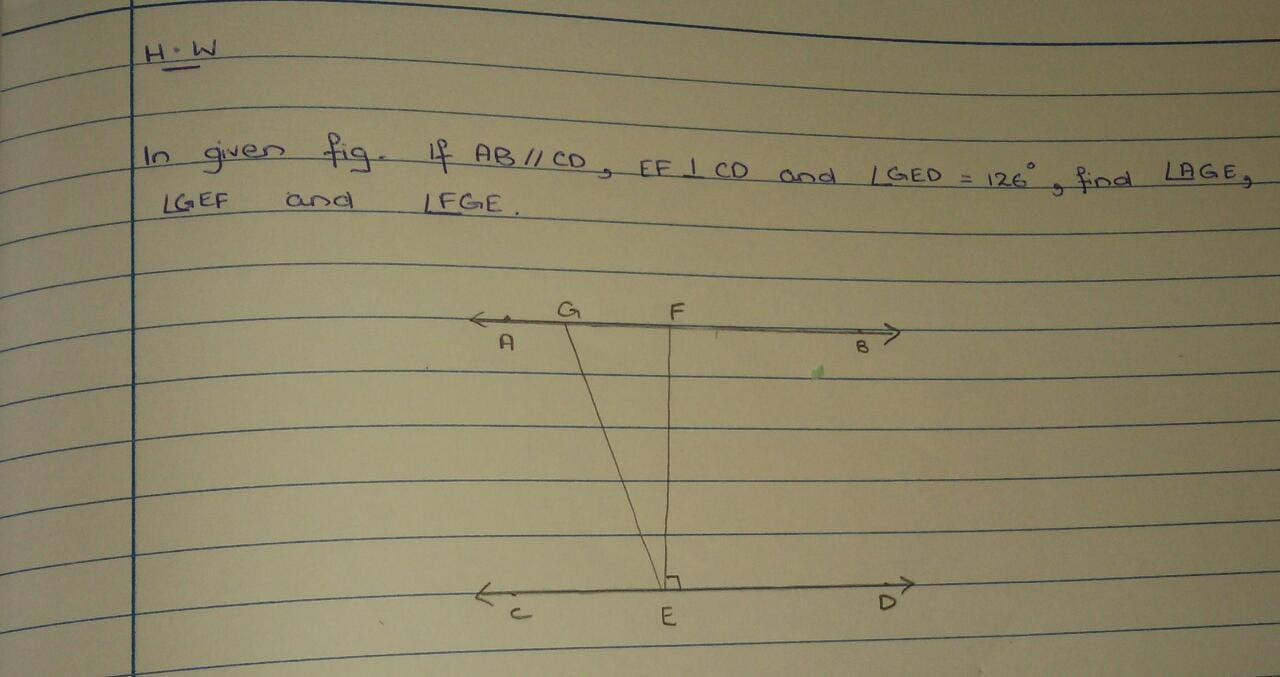 H.W
In given fig. If AB // CD, EF ⊥ CD and ∠GED = 126°, find ∠AGE,
∠GEF and ∠FGE.
G F
A B
C E D